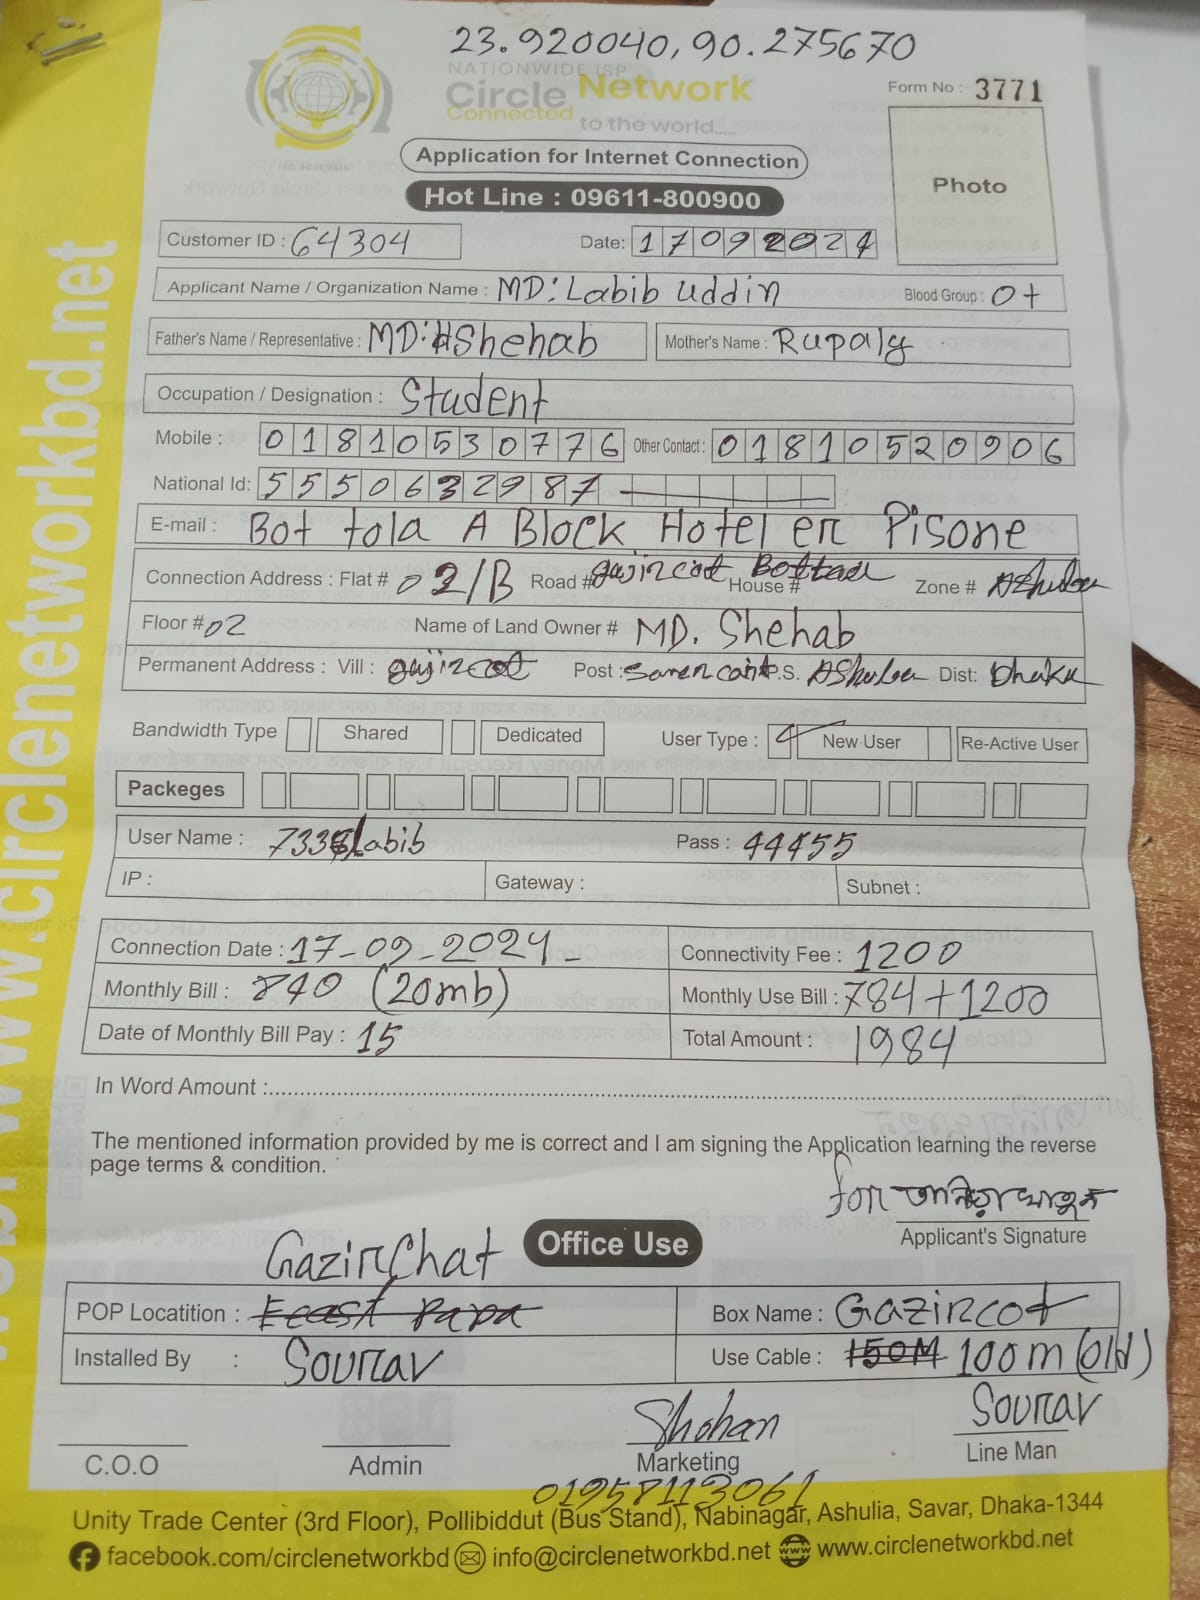 23.920040, 90.275670
NATIONWIDE ISP
Circle Network
Connected to the world.....
Form No : 3771
Photo
Application for Internet Connection
Hot Line : 09611-800900
Customer ID : 64304 Date: 17092024
Applicant Name / Organization Name : MD: Labib Uddin Blood Group : O+
Father's Name / Representative : MD: Shehab Mother's Name : Rupaly
Occupation / Designation : Student
Mobile : 01810530776 Other Contact : 01810520906
National Id: 5550632987
E-mail : Bot tola A Block Hotel er Pisone
Connection Address : Flat # 02/B Road # gajircot House # Zone # AShulea
Floor # 02 Name of Land Owner # MD. Shehab
Permanent Address : Vill : gajircot Post : P.S. AShulea Dist: Dhaka
Bandwidth Type Shared Dedicated User Type : New User Re-Active User
Packeges
User Name : Labib Pass : 44455
IP : Gateway : Subnet :
Connection Date : 17-09-2024 Connectivity Fee : 1200
Monthly Bill : 840 (20mb) Monthly Use Bill : 784+1200
Date of Monthly Bill Pay : 15 Total Amount : 1984
In Word Amount :
The mentioned information provided by me is correct and I am signing the Application learning the reverse
page terms & condition.
for
Applicant's Signature
Office Use
GazirChat
POP Locatition : Box Name : Gazircot
Installed By : Sourav Use Cable : 150M 100m (old)
Shohan Sourav
C.O.O Admin Marketing Line Man
01958113061
Unity Trade Center (3rd Floor), Pollibiddut (Bus Stand), Nabinagar, Ashulia, Savar, Dhaka-1344
facebook.com/circlenetworkbd info@circlenetworkbd.net www.circlenetworkbd.net
www.circlenetworkbd.net